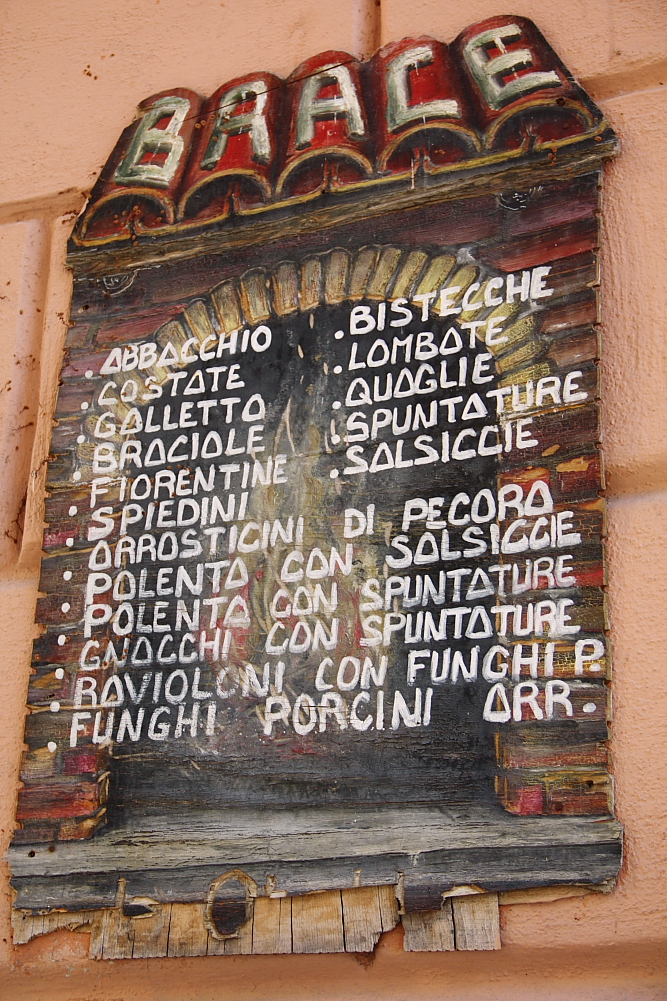 BRACE
. ABBACCHIO
. COSTATE
. GALLETTO
. BRACIOLE
. FIORENTINE
. SPIEDINI
. BISTECCHE
. LOMBATE
. QUAGLIE
. SPUNTATURE
. SALSICCIE
. ARROSTICINI DI PECORA
. POLENTA CON SALSICCIE
. POLENTA CON SPUNTATURE
. GNOCCHI CON SPUNTATURE
. RAVIOLONI CON FUNGHI P.
. FUNGHI PORCINI ARR.